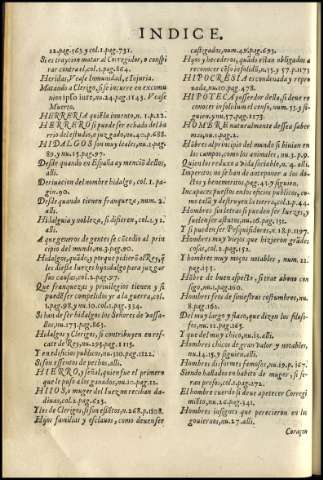 INDICE.
22.pag.163.y col.1.pag.731.
Si es crayeron matar al Corregidor, o conspi
rar contra el, col.2.pag.864.
Heridas, Vease Inmunidad, e Injuria.
Matando a Clerigo, si se incurre en excomu
nion ipso iure, nu.24.pag.1143. Vease
Muerto.
HERRERIA quié la inuento, n.1.p.12.
HERRERO si puede ser echado del ba
HIDALGOS son muy leales, nu.1.pag.
89.y nu.15.pag.97.
Desde quando en España ay mencion dellos,
alli.
Deriuacion del nombre hidalgo, col.1. pa
gin.90.
Desde quando tienen franqueze, num.2.
alli.
Hidalguia y nobleza, si difieren, col.2.y 2.
alli.
A que generos de gentes se excedio al prin
cipio del mundo, nu.3.pag.90.
sus causas, col.2.pag.97.
Que franquezas y priuilegios tienen y si
pueden ser compelidos yr a la guerra, col.
Si han de ser hidalgos los Señores de vassa-
llos, nu.173.pag.863.
Hidalgos y Clerigos, si contribuyen en res
cate de Rey, nu.193.pag.1113.
Y en edificios publicos, nu.100.pag.1222.
Si son essentos de pechos, alli.
HIERRO, y señal, quien fue el primero
que le puso a los ganados, nu.12.pag.12.
HIJOS, y muger del Iuez no reciban da-
diuas, col.2.pag.623.
Y los de Clerigos, si son essétos, n.268.p.1208.
Hijos familias y esclauos, como deuen ser
castigados, num.48.pag.693.
Hijos y herederos, quando estan obligados a
reconocer césos insolidú, n.45.y 57.p.1173.
HIPOCRESIA es condenada y repro-
uada, nu.10.pag.478.
HIPOTECA posseedor della, si deue re
conocer insolidum el censo, num.55.y si-
guien.y num.57.pag.1173.
HOMBRE naturalmente dessea saber
nu.1.pag.1.
Hóbres al principio del mundo si biuian en
los campos, como los animales, nu.1.p.9.
Quien los reduxo a vida sociable, n.4. alli.
Imperitos no se han de anteponer a los do-
ctos y benemeritos, pag.45.y siguien.
Incapaces puestos en los oficios publicos, co-
mo tala y destruyen la tierra, col.1.p.44.
Hombres sin letras si pueden ser Iuezes, y
de ser assessores, nu.16.pag.151.
Y si pueden ser Pesquisidores, n.18.p.1197.
Hombres muy viejos que hizieron grádes
cosas, col.1.pag.152.
Y hombres muy moços notables, num. 21.
pag.153.
Hóbre de buen aspecto, si trae abono con
sigo, nu.10.pag.160.
Hombres feos de siniestras costumbres, nu.
8.pag.160.
Del muy largo y flaco, que dizen los filoso-
fos, nu.11.pag.165.
Y que del muy chico, nu.15. alli.
Hombres chicos de gran valor y notables,
nu.14.15.y siguien. alli.
Hombres disformes famosos, nu.19.p.167.
Siendo hallados en habito de muger, si se-
ran presos, col.2.pag.172.
El hombre cuerdo si deue apetecer Corregi
miento, nu.26.pag.241.
Hombres insignes que perecieron en los
gouiernos, nu.27.alli.
Coraçon